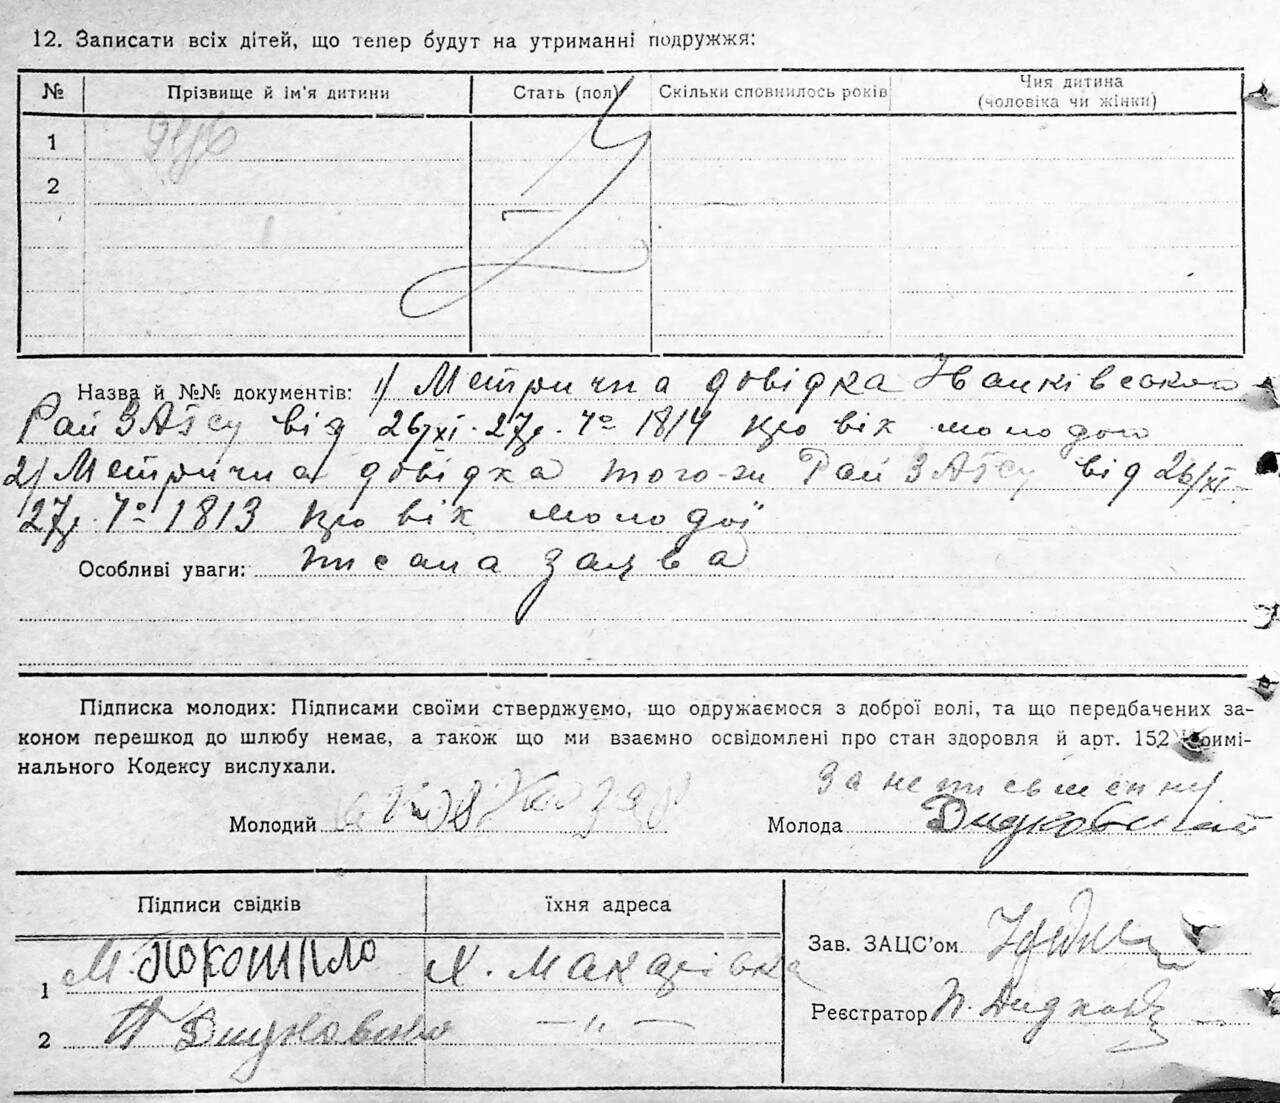 12. Записати всіх дітей, що тепер будут на утриманні подружжя:
№ Прізвище й ім'я дитини Стать (пол) Скільки сповнилось років Чия дитина (чоловіка чи жінки)
1
2
Назва й №№ документів: 1) Метрична довідка Іванківського
Рай ЗАГСу від 26/XI-27р. № 1814 про вік молодого
2) Метрична довідка того-ж Рай ЗАГСу від 26/XI-
27р. № 1813 про вік молодої
Особливі уваги: писана заява
Підписка молодих: Підписами своїми стверджуємо, що одружаємося з доброї волі, та що передбачених за-
коном перешкод до шлюбу немає, а також що ми взаємно освідомлені про стан здоровля й арт. 152 Кримі-
нального Кодексу вислухали.
За неписьменну
Молодий Молода
Підписи свідків їхня адреса
Зав. ЗАЦС'ом
1 М. Покотило Х. Макаівка
Реєстратор П.
2 П — " —